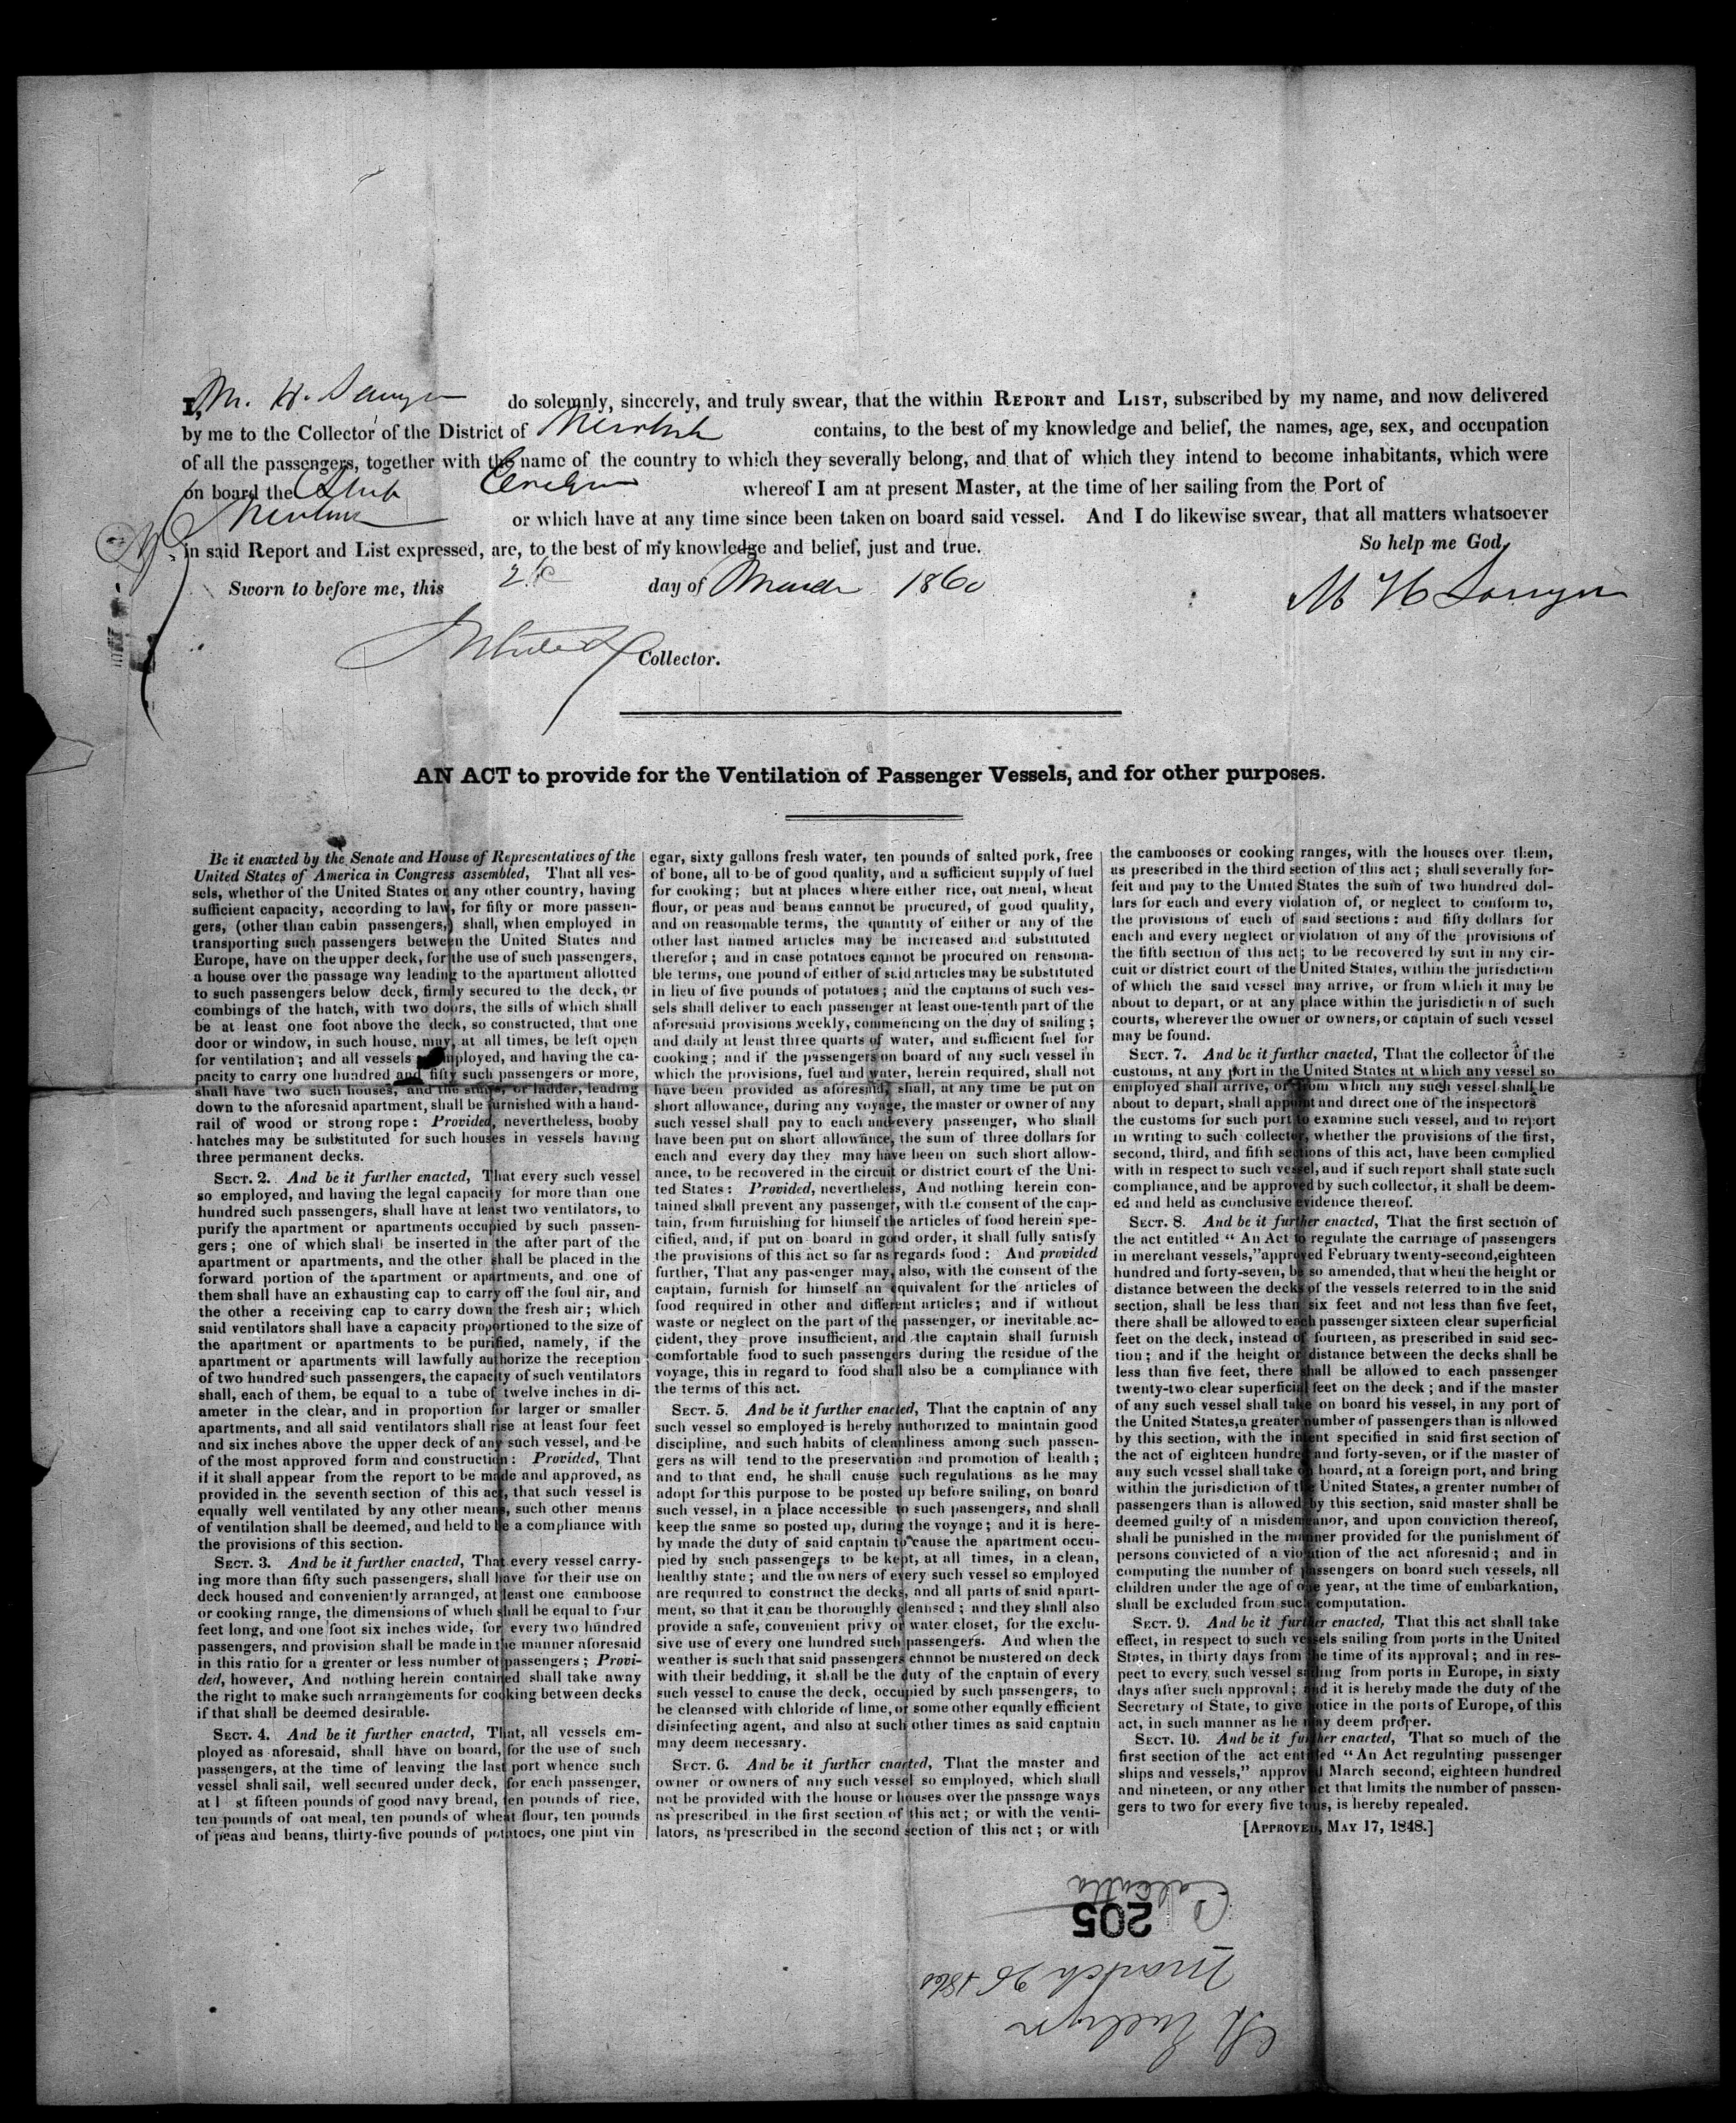 I, M. H. Sawyer do solemnly, sincerely, and truly swear, that the within REPORT and LIST, subscribed by my name, and now delivered
by me to the Collector of the District of contains, to the best of my knowledge and belief, the names, age, sex, and occupation
of all the passengers, together with the name of the country to which they severally belong, and that of which they intend to become inhabitants, which were
on board the Ship Evelyn whereof I am at present Master, at the time of her sailing from the Port of
or which have at any time since been taken on board said vessel. And I do likewise swear, that all matters whatsoever
in said Report and List expressed, are, to the best of my knowledge and belief, just and true. So help me God,
Sworn to before me, this day of March 1860 M H Sawyer
Collector.
AN ACT to provide for the Ventilation of Passenger Vessels, and for other purposes.
Be it enacted by the Senate and House of Representatives of the
United States of America in Congress assembled, That all ves-
sels, whether of the United States or any other country, having
sufficient capacity, according to law, for fifty or more passen-
gers, (other than cabin passengers,) shall, when employed in
transporting such passengers between the United States and
Europe, have on the upper deck, for the use of such passengers,
a house over the passage way leading to the apartment allotted
to such passengers below deck, firmly secured to the deck, or
combings of the hatch, with two doors, the sills of which shall
be at least one foot above the deck, so constructed, that one
door or window, in such house, may, at all times, be left open
for ventilation; and all vessels employed, and having the ca-
pacity to carry one hundred and fifty such passengers or more,
shall have two such houses, and the stairs, or ladder, leading
down to the aforesaid apartment, shall be furnished with a hand-
rail of wood or strong rope: Provided, nevertheless, booby
hatches may be substituted for such houses in vessels having
three permanent decks.
SECT. 2. And be it further enacted, That every such vessel
so employed, and having the legal capacity for more than one
hundred such passengers, shall have at least two ventilators, to
purify the apartment or apartments occupied by such passen-
gers; one of which shall be inserted in the after part of the
apartment or apartments, and the other shall be placed in the
forward portion of the apartment or apartments, and one of
them shall have an exhausting cap to carry off the foul air, and
the other a receiving cap to carry down the fresh air; which
said ventilators shall have a capacity proportioned to the size of
the apartment or apartments to be purified, namely, if the
apartment or apartments will lawfully authorize the reception
of two hundred such passengers, the capacity of such ventilators
shall, each of them, be equal to a tube of twelve inches in di-
ameter in the clear, and in proportion for larger or smaller
apartments, and all said ventilators shall rise at least four feet
and six inches above the upper deck of any such vessel, and be
of the most approved form and construction: Provided, That
if it shall appear from the report to be made and approved, as
provided in the seventh section of this act, that such vessel is
equally well ventilated by any other means, such other means
of ventilation shall be deemed, and held to be a compliance with
the provisions of this section.
SECT. 3. And be it further enacted, That every vessel carry-
ing more than fifty such passengers, shall have for their use on
deck housed and conveniently arranged, at least one camboose
or cooking range, the dimensions of which shall be equal to four
feet long, and one foot six inches wide, for every two hundred
passengers, and provision shall be made in the manner aforesaid
in this ratio for a greater or less number of passengers; Provi-
ded, however, And nothing herein contained shall take away
the right to make such arrangements for cooking between decks
if that shall be deemed desirable.
SECT. 4. And be it further enacted, That, all vessels em-
ployed as aforesaid, shall have on board, for the use of such
passengers, at the time of leaving the last port whence such
vessel shall sail, well secured under deck, for each passenger,
at l st fifteen pounds of good navy bread, ten pounds of rice,
ten pounds of oat meal, ten pounds of wheat flour, ten pounds
of peas and beans, thirty-five pounds of potatoes, one pint vin
egar, sixty gallons fresh water, ten pounds of salted pork, free
of bone, all to be of good quality, and a sufficient supply of fuel
for cooking; but at places where either rice, oat meal, wheat
flour, or peas and beans cannot be procured, of good quality,
and on reasonable terms, the quantity of either or any of the
other last named articles may be increased and substituted
therefor; and in case potatoes cannot be procured on reasona-
ble terms, one pound of either of said articles may be substituted
in lieu of five pounds of potatoes; and the captains of such ves-
sels shall deliver to each passenger at least one-tenth part of the
aforesaid provisions weekly, commencing on the day of sailing;
and daily at least three quarts of water, and sufficient fuel for
cooking; and if the passengers on board of any such vessel in
which the provisions, fuel and water, herein required, shall not
have been provided as aforesaid, shall, at any time be put on
short allowance, during any voyage, the master or owner of any
such vessel shall pay to each and every passenger, who shall
have been put on short allowance, the sum of three dollars for
each and every day they may have been on such short allow-
ance, to be recovered in the circuit or district court of the Uni-
ted States: Provided, nevertheless, And nothing herein con-
tained shall prevent any passenger, with the consent of the cap-
tain, from furnishing for himself the articles of food herein spe-
cified, and, if put on board in good order, it shall fully satisfy
the provisions of this act so far as regards food: And provided
further, That any passenger may, also, with the consent of the
captain, furnish for himself an equivalent for the articles of
food required in other and different articles; and if without
waste or neglect on the part of the passenger, or inevitable ac-
cident, they prove insufficient, and the captain shall furnish
comfortable food to such passengers during the residue of the
voyage, this in regard to food shall also be a compliance with
the terms of this act.
SECT. 5. And be it further enacted, That the captain of any
such vessel so employed is hereby authorized to maintain good
discipline, and such habits of cleanliness among such passen-
gers as will tend to the preservation and promotion of health;
and to that end, he shall cause such regulations as he may
adopt for this purpose to be posted up before sailing, on board
such vessel, in a place accessible to such passengers, and shall
keep the same so posted up, during the voyage; and it is here-
by made the duty of said captain to cause the apartment occu-
pied by such passengers to be kept, at all times, in a clean,
healthy state; and the owners of every such vessel so employed
are required to construct the decks, and all parts of said apart-
ment, so that it can be thoroughly cleansed; and they shall also
provide a safe, convenient privy or water closet, for the exclu-
sive use of every one hundred such passengers. And when the
weather is such that said passengers cannot be mustered on deck
with their bedding, it shall be the duty of the captain of every
such vessel to cause the deck, occupied by such passengers, to
be cleansed with chloride of lime, or some other equally efficient
disinfecting agent, and also at such other times as said captain
may deem necessary.
SECT. 6. And be it further enacted, That the master and
owner or owners of any such vessel so employed, which shall
not be provided with the house or houses over the passage ways
as prescribed in the first section of this act; or with the venti-
lators, as prescribed in the second section of this act; or with
the cambooses or cooking ranges, with the houses over them,
as prescribed in the third section of this act; shall severally for-
feit and pay to the United States the sum of two hundred dol-
lars for each and every violation of, or neglect to conform to,
the provisions of each of said sections: and fifty dollars for
each and every neglect or violation of any of the provisions of
the fifth section of this act; to be recovered by suit in any cir-
cuit or district court of the United States, within the jurisdiction
of which the said vessel may arrive, or from which it may be
about to depart, or at any place within the jurisdiction of such
courts, wherever the owner or owners, or captain of such vessel
may be found.
SECT. 7. And be it further enacted, That the collector of the
customs, at any port in the United States at which any vessel so
employed shall arrive, or from which any such vessel shall be
about to depart, shall appoint and direct one of the inspectors
the customs for such port to examine such vessel, and to report
in writing to such collector, whether the provisions of the first,
second, third, and fifth sections of this act, have been complied
with in respect to such vessel, and if such report shall state such
compliance, and be approved by such collector, it shall be deem-
ed and held as conclusive evidence thereof.
SECT. 8. And be it further enacted, That the first section of
the act entitled "An Act to regulate the carriage of passengers
in merchant vessels," approved February twenty-second, eighteen
hundred and forty-seven, be so amended, that when the height or
distance between the decks of the vessels referred to in the said
section, shall be less than six feet and not less than five feet,
there shall be allowed to each passenger sixteen clear superficial
feet on the deck, instead of fourteen, as prescribed in said sec-
tion; and if the height or distance between the decks shall be
less than five feet, there shall be allowed to each passenger
twenty-two clear superficial feet on the deck; and if the master
of any such vessel shall take on board his vessel, in any port of
the United States, a greater number of passengers than is allowed
by this section, with the intent specified in said first section of
the act of eighteen hundred and forty-seven, or if the master of
any such vessel shall take on board, at a foreign port, and bring
within the jurisdiction of the United States, a greater number of
passengers than is allowed by this section, said master shall be
deemed guilty of a misdemeanor, and upon conviction thereof,
shall be punished in the manner provided for the punishment of
persons convicted of a violation of the act aforesaid; and in
computing the number of passengers on board such vessels, all
children under the age of one year, at the time of embarkation,
shall be excluded from such computation.
SECT. 9. And be it further enacted, That this act shall take
effect, in respect to such vessels sailing from ports in the United
States, in thirty days from the time of its approval; and in res-
pect to every such vessel sailing from ports in Europe, in sixty
days after such approval; and it is hereby made the duty of the
Secretary of State, to give notice in the ports of Europe, of this
act, in such manner as he may deem proper.
SECT. 10. And be it further enacted, That so much of the
first section of the act entitled "An Act regulating passenger
ships and vessels," approved March second, eighteen hundred
and nineteen, or any other act that limits the number of passen-
gers to two for every five tons, is hereby repealed.
[APPROVED, MAY 17, 1848.]
Evelyn
March 26 1860
205
Calcutta